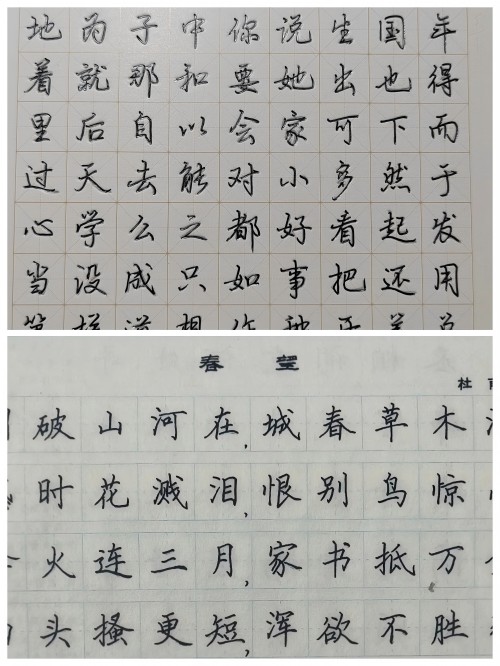 地为子中你说生国年
着就那和要她出也得
里后自以会家可下而
过天去能对小多然于
心学么之都好看起发
当没成只如事把还用
春望
杜
破山河在,城春草木
时花溅泪,恨别鸟惊
火连三月,家书抵万
头搔更短,浑欲不胜